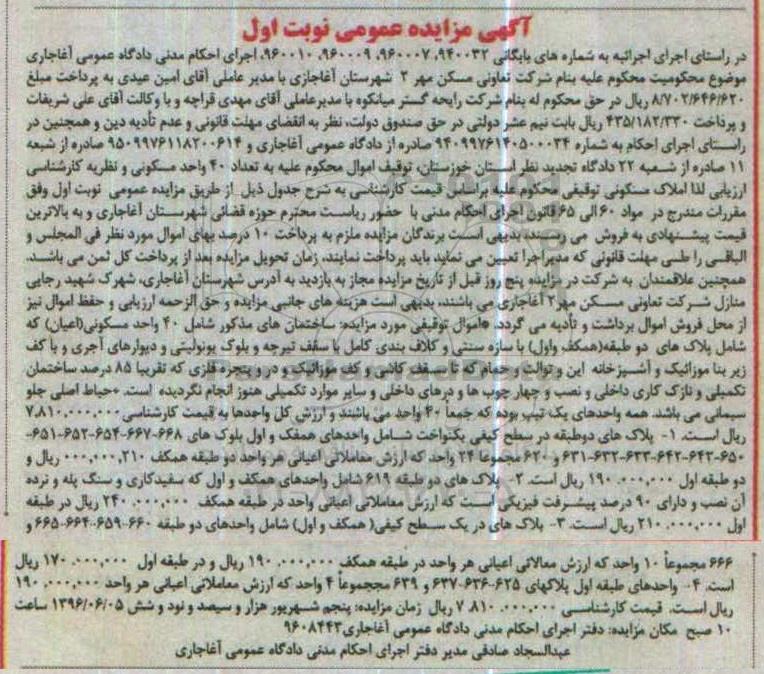 آگهی مزایده عمومی نوبت اول
در راستای اجرای اجرائیه به شماره های بایگانی ۹۴۰۰۳۲، ۹۶۰۰۰۷، ۹۶۰۰۰۹، ۹۶۰۰۱۰، اجرای احکام مدنی دادگاه عمومی آغاجاری
موضوع محکومیت محکوم علیه بنام شرکت تعاونی مسکن مهر ۲ شهرستان آغاجازی با مدیر عاملی آقای امین عیدی به پرداخت مبلغ
۸/۷۰۲/۶۴۶/۶۲۰ ریال در حق محکوم له بنام شرکت رایحه گستر میانکوه با مدیرعاملی آقای مهدی قراچه و با وکالت آقای علی شریفات
و پرداخت ۴۳۵/۱۸۲/۳۳۰ ریال بابت نیم عشر دولتی در حق صندوق دولت، نظر به انقضای مهلت قانونی و عدم تأدیه دین و همچنین در
راستای اجرای احکام به شماره ۹۴۰۹۹۷۶۱۴۰۵۰۰۰۳۴ صادره از دادگاه عمومی آغاجاری و ۹۵۰۹۹۷۶۱۱۸۲۰۰۶۱۴ صادره از شعبه
۱۱ صادره از شعبه ۲۲ دادگاه تجدید نظر استان خوزستان، توقیف اموال محکوم علیه به تعداد ۴۰ واحد مسکونی و نظریه کارشناسی
ارزیابی لذا املاک مسکونی توقیفی محکوم علیه براساس قیمت کارشناسی به شرح جدول ذیل از طریق مزایده عمومی نوبت اول وفق
مقررات مندرج در مواد ۶۰ الی ۶۵ قانون اجرای احکام مدنی با حضور ریاست محترم حوزه قضائی شهرستان آغاجاری و به بالاترین
قیمت پیشنهادی به فروش می رسند، بدیهی است برندگان مزایده ملزم به پرداخت ۱۰ درصد بهای اموال مورد نظر فی المجلس و
الباقی را طی مهلت قانونی که مدیراجرا تعیین می نماید باید پرداخت نمایند، زمان تحویل مزایده بعد از پرداخت کل ثمن می باشد.
همچنین علاقمندان به شرکت در مزایده پنج روز قبل از تاریخ مزایده مجاز به بازدید به آدرس شهرستان آغاجاری، شهرک شهید رجایی
منازل شرکت تعاونی مسکن مهر۲ آغاجاری می باشند، بدیهی است هزینه های جانبی مزایده و حق الزحمه ارزیابی و حفظ اموال نیز
از محل فروش اموال برداشت و تأدیه می گردد. *اموال توقیفی مورد مزایده: ساختمان های مذکور شامل ۴۰ واحد مسکونی(اعیان) که
شامل پلاک های دو طبقه(همکف واول) با سازه سنتی و کلاف بندی کامل با سقف تیرچه و بلوک یونولیتی و دیوارهای آجری و با کف
زیر بنا موزائیک و آشپزخانه این و توالت و حمام که تا سقف کاشی و کف موزائیک و در و پنجره فلزی که تقریبا ۸۵ درصد ساختمان
تکمیلی و نازک کاری داخلی و نصب و چهار چوب ها و درهای داخلی و سایر موارد تکمیلی هنوز انجام نگردیده است. *حیاط اصلی جلو
سیمانی می باشد. همه واحدهای یک تیپ بوده که جمعاً ۴۰ واحد می باشند و ارزش کل واحدها به قیمت کارشناسی ۷,۸۱۰,۰۰۰,۰۰۰
ریال است. ۱- پلاک های دوطبقه در سطح کیفی یکنواخت شامل واحدهای همفک و اول بلوک های ۶۶۸-۶۶۷-۶۵۴-۶۵۲-۶۵۱-
۶۵۰-۶۴۳-۶۴۲-۶۳۳-۶۳۲-۶۳۱ و ۶۲۰ مجموعاً ۲۴ واحد که ارزش معاملاتی اعیانی هر واحد دو طبقه همکف ۲۱۰,۰۰۰,۰۰۰ ریال و
دو طبقه اول ۱۹۰,۰۰۰,۰۰۰ ریال است. ۲- پلاک های دو طبقه ۶۱۹ شامل واحدهای همکف و اول که سفیدکاری و سنگ پله و نرده
آن نصب و دارای ۹۰ درصد پیشرفت فیزیکی است که ارزش معاملاتی اعیانی واحد در طبقه همکف ۲۴۰,۰۰۰,۰۰۰ ریال در طبقه
اول ۲۱۰,۰۰۰,۰۰۰ ریال است. ۳- پلاک های در یک سطح کیفی( همکف و اول) شامل واحدهای دو طبقه ۶۶۰-۶۵۹-۶۶۴-۶۶۵ و
۶۶۶ مجموعاً ۱۰ واحد که ارزش معالاتی اعیانی هر واحد در طبقه همکف ۱۹۰,۰۰۰,۰۰۰ ریال و در طبقه اول ۱۷۰,۰۰۰,۰۰۰ ریال
است. ۴- واحدهای طبقه اول پلاکهای ۶۲۵-۶۳۶-۶۳۷ و ۶۳۹ مججموعاً ۴ واحد که ارزش معاملاتی اعیانی هر واحد ۱۹۰,۰۰۰,۰۰۰
ریال است. قیمت کارشناسی ۷,۸۱۰,۰۰۰,۰۰۰ ریال زمان مزایده: پنجم شهریور هزار و سیصد و نود و شش ۱۳۹۶/۰۶/۰۵ ساعت
۱۰ صبح مکان مزایده: دفتر اجرای احکام مدنی دادگاه عمومی آغاجاری۹۶۰۸۴۴۳
عبدالسجاد صادقی مدیر دفتر اجرای احکام مدنی دادگاه عمومی آغاجاری